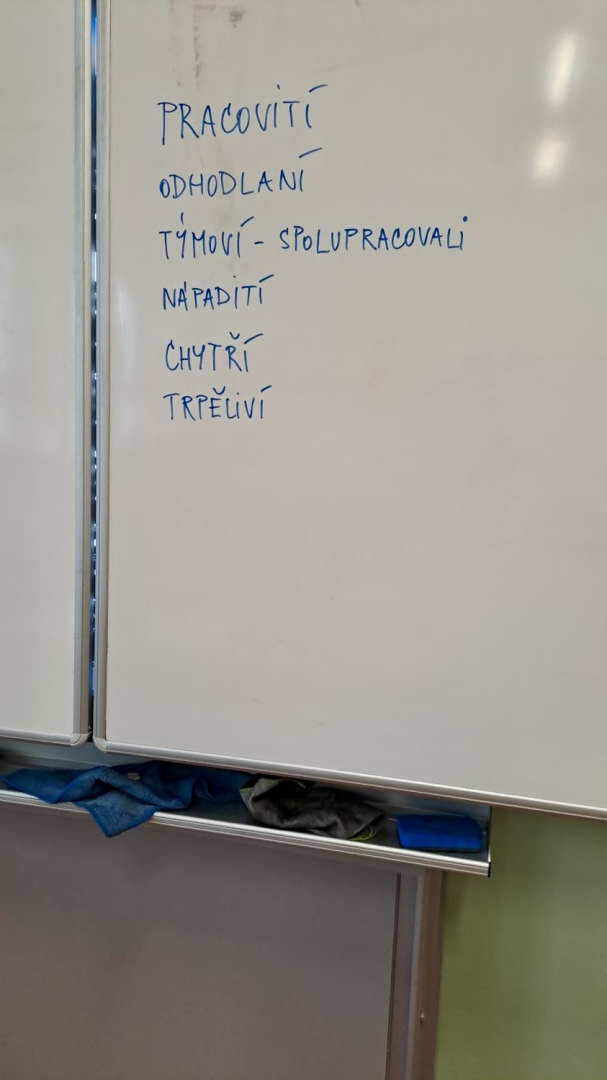 PRACOVITÍ
ODHODLANÍ
TÝMOVÍ - SPOLUPRACOVALI
NÁPADITÍ
CHYTŘÍ
TRPĚLIVÍ